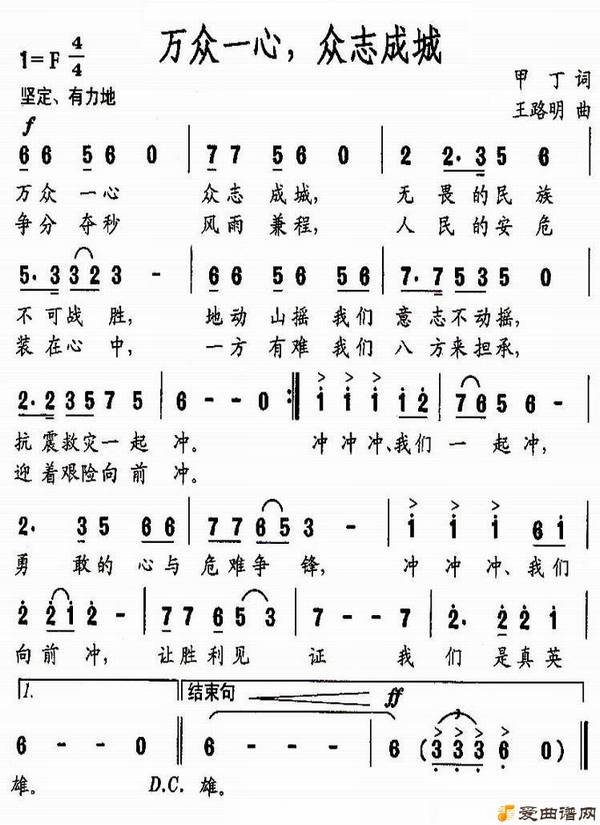 万众一心，众志成城
1=F 4/4
甲 丁 词
坚定、有力地
王路明 曲
f
6 6 5 6 0 | 7 7 5 6 0 | 2 2·3 5 6 |
万众 一心 众志 成城， 无 畏的民 族
争分 夺秒 风雨 兼程， 人 民的安 危
5·3 3 3 2 3 - | 6 6 5 6 5 6 | 7·7 5 3 5 0 |
不可战 胜， 地动 山摇 我们 意志不动摇，
装在心 中， 一方 有难 我们 八方来担承，
2·2 2 3 5 7 5 | 6 - - 0 :| i i i i 2 | 7 6 5 6 - |
抗震救灾一起 冲。 冲冲冲、我们 一 起冲，
迎着艰险向前 冲。
2· 3 5 6 6 | 7 7 6 6 5 3 - | i i i 6 i |
勇 敢的 心与 危难争 锋， 冲 冲 冲、我们
2 2 i 2 - | 7 7 6 5 3 | 7 - 7 - | 2· 2 2 i |
向前 冲， 让胜利见 证 我 们 是真英
1. 结束句 ff
6 - - 0 :| 6 - - - | 6 (3 3 3 6 0) ‖
雄。 D.C. 雄。
3
爱曲谱网